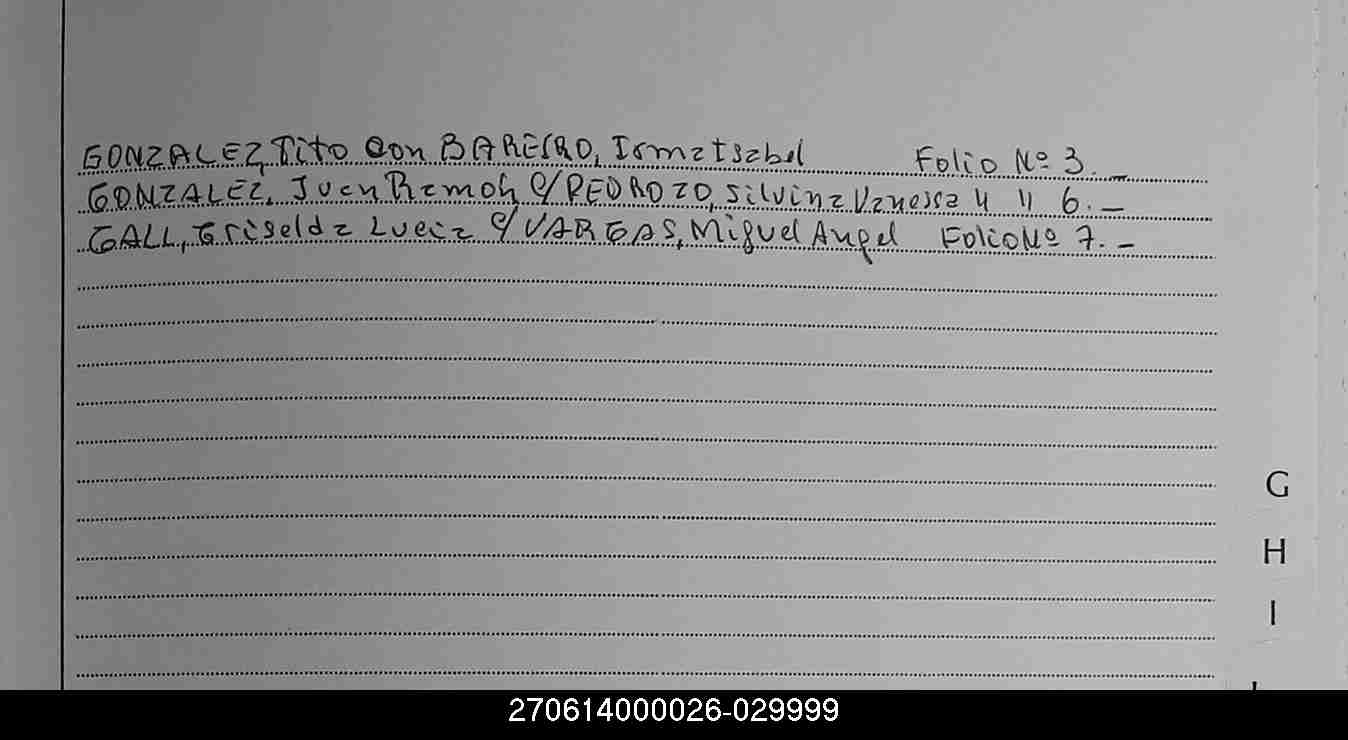 GONZALEZ, Tito con BAREIRO, Irma Isabel Folio Nº 3. _
GONZALEZ, Juan Ramon c/ PEDROZO, Silvina Vanessa " " 6. _
GALL, Griselda Lucia c/ VARGAS, Miguel Angel Folio Nº 7. _
G
H
I
270614000026-029999